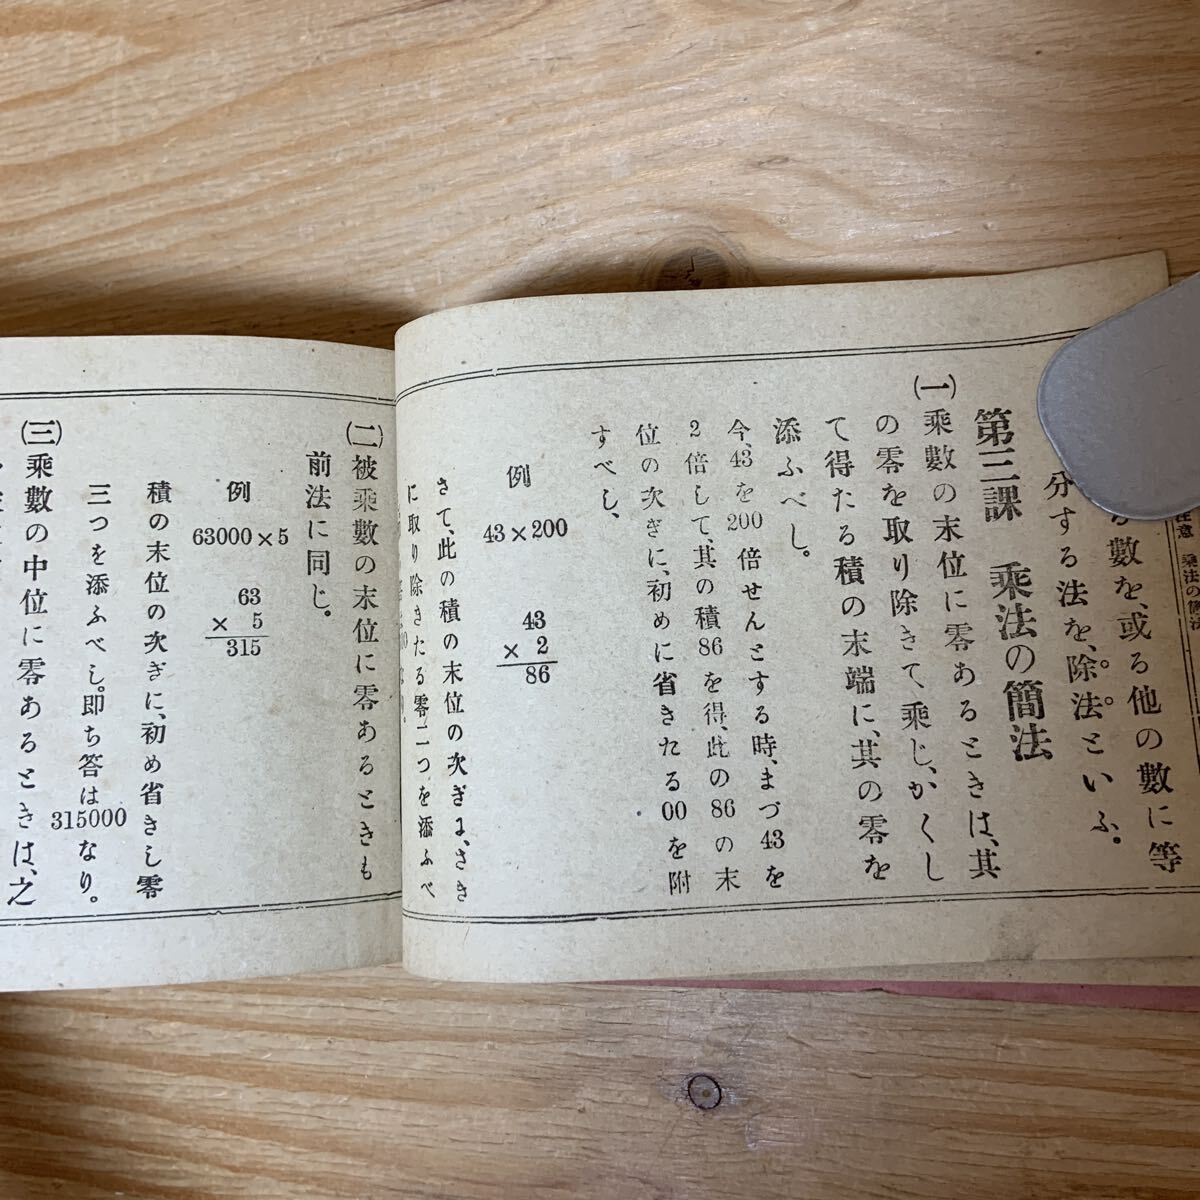 數を、或る他の數に等
分する法を、除法といふ。
第三課　乘法の簡法
(一)乘數の末位に零あるときは、其
の零を取り除きて、乘じ、かくし
て得たる積の末端に、其の零を
添ふべし。
今、43を200倍せんとする時、まづ43を
2倍して、其の積86を得、此の86の末
位の次ぎに、初めに省きたる00を附
すべし、
例
43×200
43
×　2
86
さて、此の積の末位の次ぎに、さき
に取り除きたる零二つを添ふべ
(二)被乘數の末位に零あるときも
前法に同じ。
例
63000×5
63
×　5
315
積の末位の次ぎに、初め省きし零
三つを添ふべし。即ち答は315000なり。
(三)乘數の中位に零あるときは、之
乘法の簡法